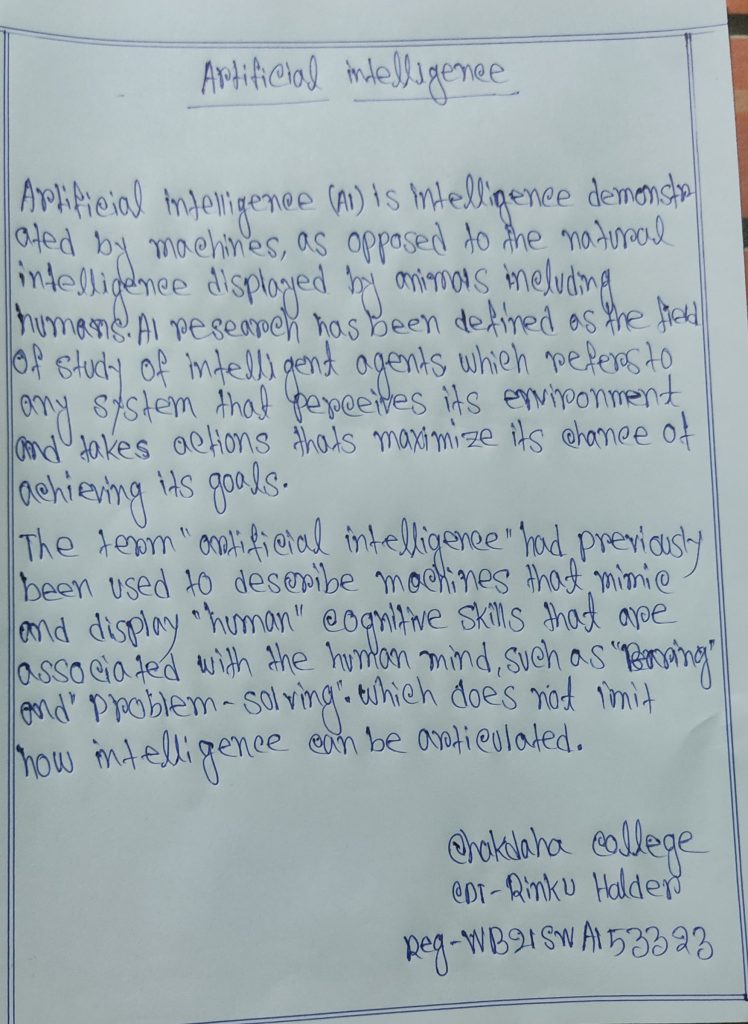 Artificial intelligence
Artificial intelligence (AI) is intelligence demonstr
ated by machines, as opposed to the natural
intelligence displayed by animals including
humans. AI research has been defined as the field
of study of intelligent agents which refers to
any system that perceives its environment
and takes actions thats maximize its chance of
achieving its goals.
The term "artificial intelligence" had previously
been used to describe machines that mimic
and display "human" cognitive skills that are
associated with the human mind, such as
and" problem-solving". which does not imit
how intelligence can be articulated.
Chakdaha college
CDT-Rinku Halder
Reg-WB21SWA153323